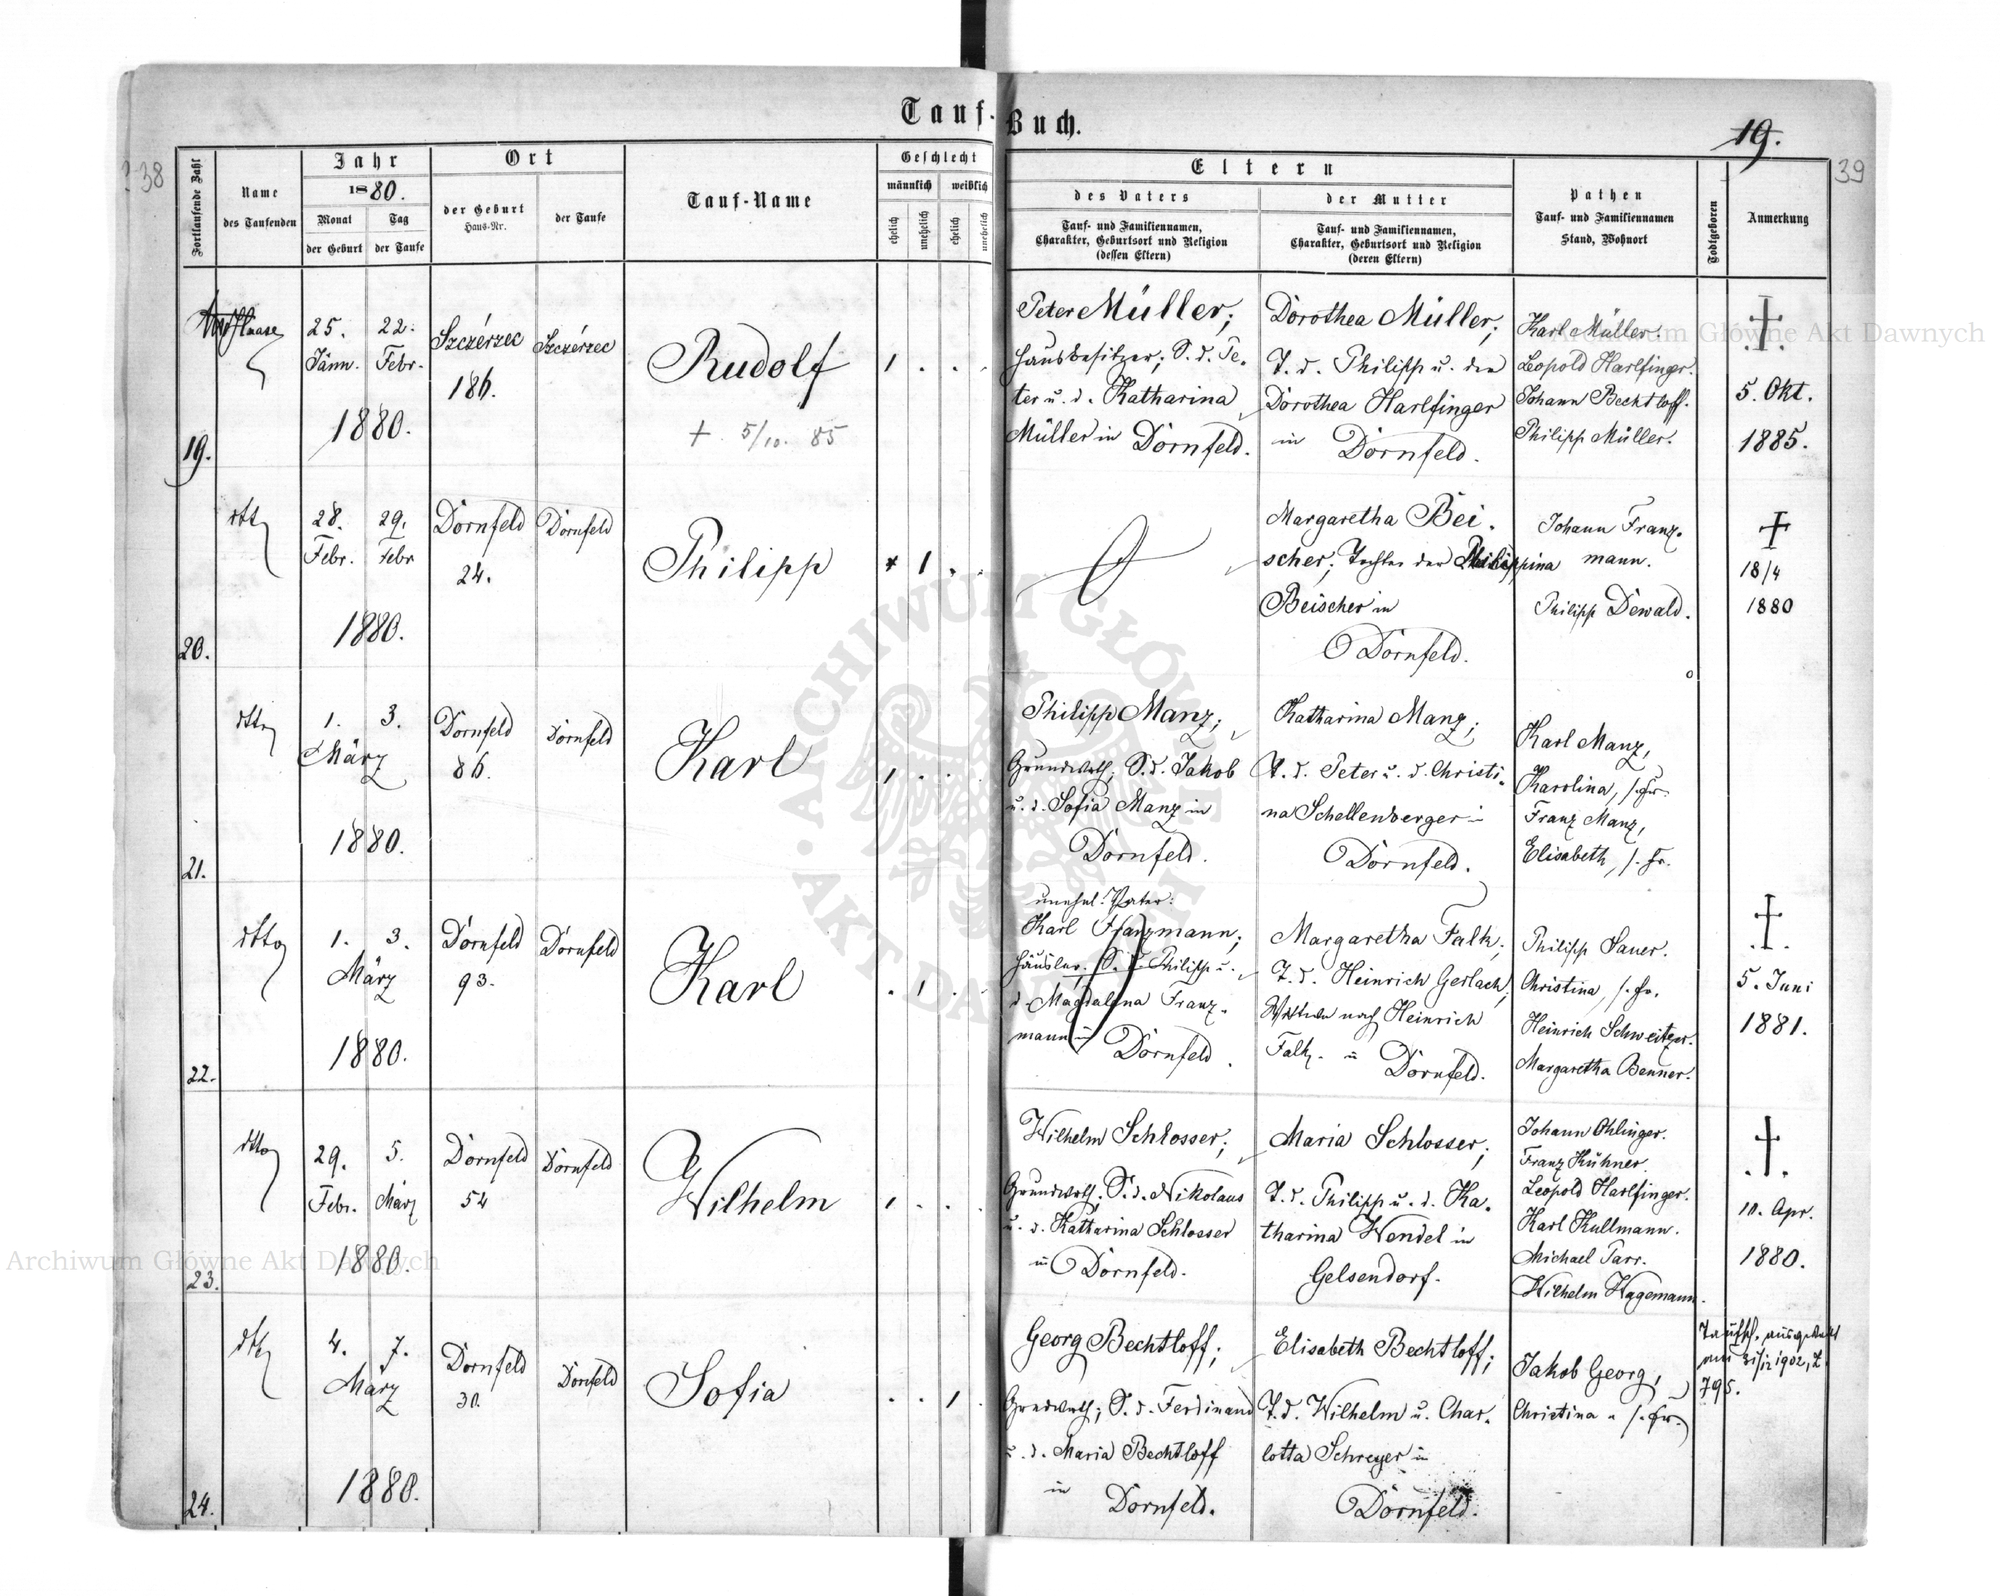 Tauf-Buch.
19.
38
39
Fortlaufende Zahl
Name
des Taufenden
Jahr
1880.
Monat
der Geburt
Tag
der Taufe
Ort
der Geburt
Haus-Nr.
der Taufe
Tauf-Name
Geschlecht
männlich
weiblich
ehelich
unehelich
ehelich
unehelich
Eltern
des Vaters
Tauf- und Familiennamen,
Charakter, Geburtsort und Religion
(dessen Eltern)
der Mutter
Tauf- und Familiennamen,
Charakter, Geburtsort und Religion
(deren Eltern)
Pathen
Tauf- und Familiennamen
Stand, Wohnort
Todtgeboren
Anmerkung
19.
Haase
25.
Jänn.
22.
Febr.
1880.
Szczérzec
186.
Szczérzec
Rudolf
+ 5/10. 85
1 . . .
Peter Müller;
Hausbesitzer; S. d. Pe-
ter u. d. Katharina
Müller in Dornfeld.
Dorothea Müller;
T. d. Philipp u. der
Dorothea Harlfinger
in Dornfeld.
Karl Müller.
Leopold Harlfinger.
Johann Bechtloff.
Philipp Müller.
5. Okt.
1885.
20.
dtto
28.
Febr.
29.
Febr
1880.
Dornfeld
24.
Dornfeld
Philipp
1 . .
Margaretha Bei-
scher; Tochter der Philippina
Beischer in
Dornfeld.
Johann Franz-
mann.
Philipp Dewald.
18/4
1880
21.
dtto
1. 3.
März
1880.
Dornfeld
86.
Dornfeld
Karl
1 . . .
Philipp Manz;
Grundwrth; S. d. Jakob
u. d. Sofia Manz in
Dornfeld.
Katharina Manz;
T. d. Peter u. d. Christi-
na Schellenberger in
Dornfeld.
Karl Manz,
Karolina, s. Fr.
Franz Manz,
Elisabeth, s. Fr.
22.
dtto
1. 3.
März
1880.
Dornfeld
93.
Dornfeld
Karl
. 1 . .
unehel. Vater:
Karl Franzmann;
Häusler, S. d. Philipp u.
d. Magdalena Franz-
mann in Dornfeld.
Margaretha Falk;
T. d. Heinrich Gerlach;
Witwe nach Heinrich
Falk. in Dornfeld.
Philipp Sauer.
Christina, s. Fr.
Heinrich Schweitzer.
Margaretha Benner.
5. Juni
1881.
23.
dtto
29.
Febr.
5.
März
1880.
Dornfeld
54
Dornfeld
Wilhelm
1 . . .
Wilhelm Schlosser;
Grundwrth; S. d. Nikolaus
u. d. Katharina Schlosser
in Dornfeld.
Maria Schlosser;
T. d. Philipp u. d. Ka-
tharina Wendel in
Gelsendorf.
Johann Ohlinger.
Franz Kühner.
Leopold Harlfinger.
Karl Kullmann.
Michael Parr.
Wilhelm Hagemann.
10. Apr.
1880.
24.
dtto
4. 7.
März
1880.
Dornfeld
30.
Dornfeld
Sofia
. . 1 .
Georg Bechtloff;
Grundwrth; S. d. Ferdinand
u. d. Maria Bechtloff
in Dornfeld.
Elisabeth Bechtloff;
T. d. Wilhelm u. Char-
lotta Schreyer in
Dornfeld.
Jakob Georg,
Christina, s. Fr.
Taufsch. ausgestellt
am 31/12 1902, Z.
795.
Archiwum Główne Akt Dawnych
Archiwum Główne Akt Dawnych
ARCHIWUM GŁÓWNE · AKT DAWNYCH ·